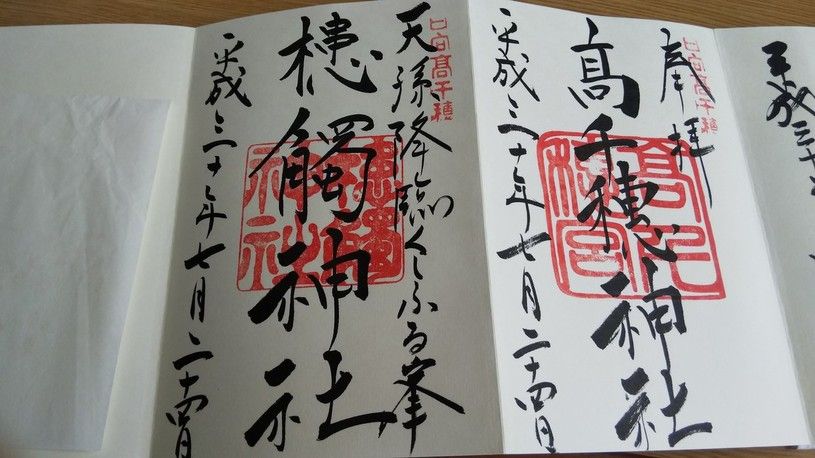 平成三十
日向髙千穂
奉拝
髙千穗神社
高千穂宮
平成三十年七月二十四日
日向髙千穂
天孫降臨くしふる峯
槵觸神社
槵觸神社
平成三十年七月二十四日